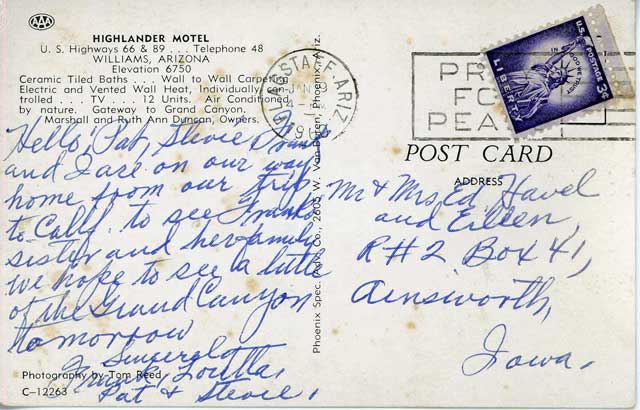 AAA
HIGHLANDER MOTEL
U. S. Highways 66 & 89 . . . Telephone 48
WILLIAMS, ARIZONA
Elevation 6750
Ceramic Tiled Baths . . . Wall to Wall Carpeting
Electric and Vented Wall Heat, Individually Con-
trolled . . . TV . . . 12 Units. Air Conditioned
by nature. Gateway to Grand Canyon.
Marshall and Ruth Ann Duncan, Owners.
Hello! Pat, Stevie
and I are on our way
home from our trip
to Calif. to see
sister and her family
we hope to see a little
of the Grand Canyon
tomorrow
Sincerely
Frank, Loutta,
Pat & Stevie,
Photography by Tom Reed
C-12263
Phoenix Spec. Adv. Co., 2605 W. Van Buren, Phoenix, Ariz.
FLAGSTAFF, ARIZ.
PRAY
FOR
PEACE
U.S. POSTAGE 3¢
IN GOD WE TRUST
LIBERTY
POST CARD
ADDRESS
Mr & Mrs. Ed Havel
and Eileen,
R#2 Box 41,
Ainsworth,
Iowa.